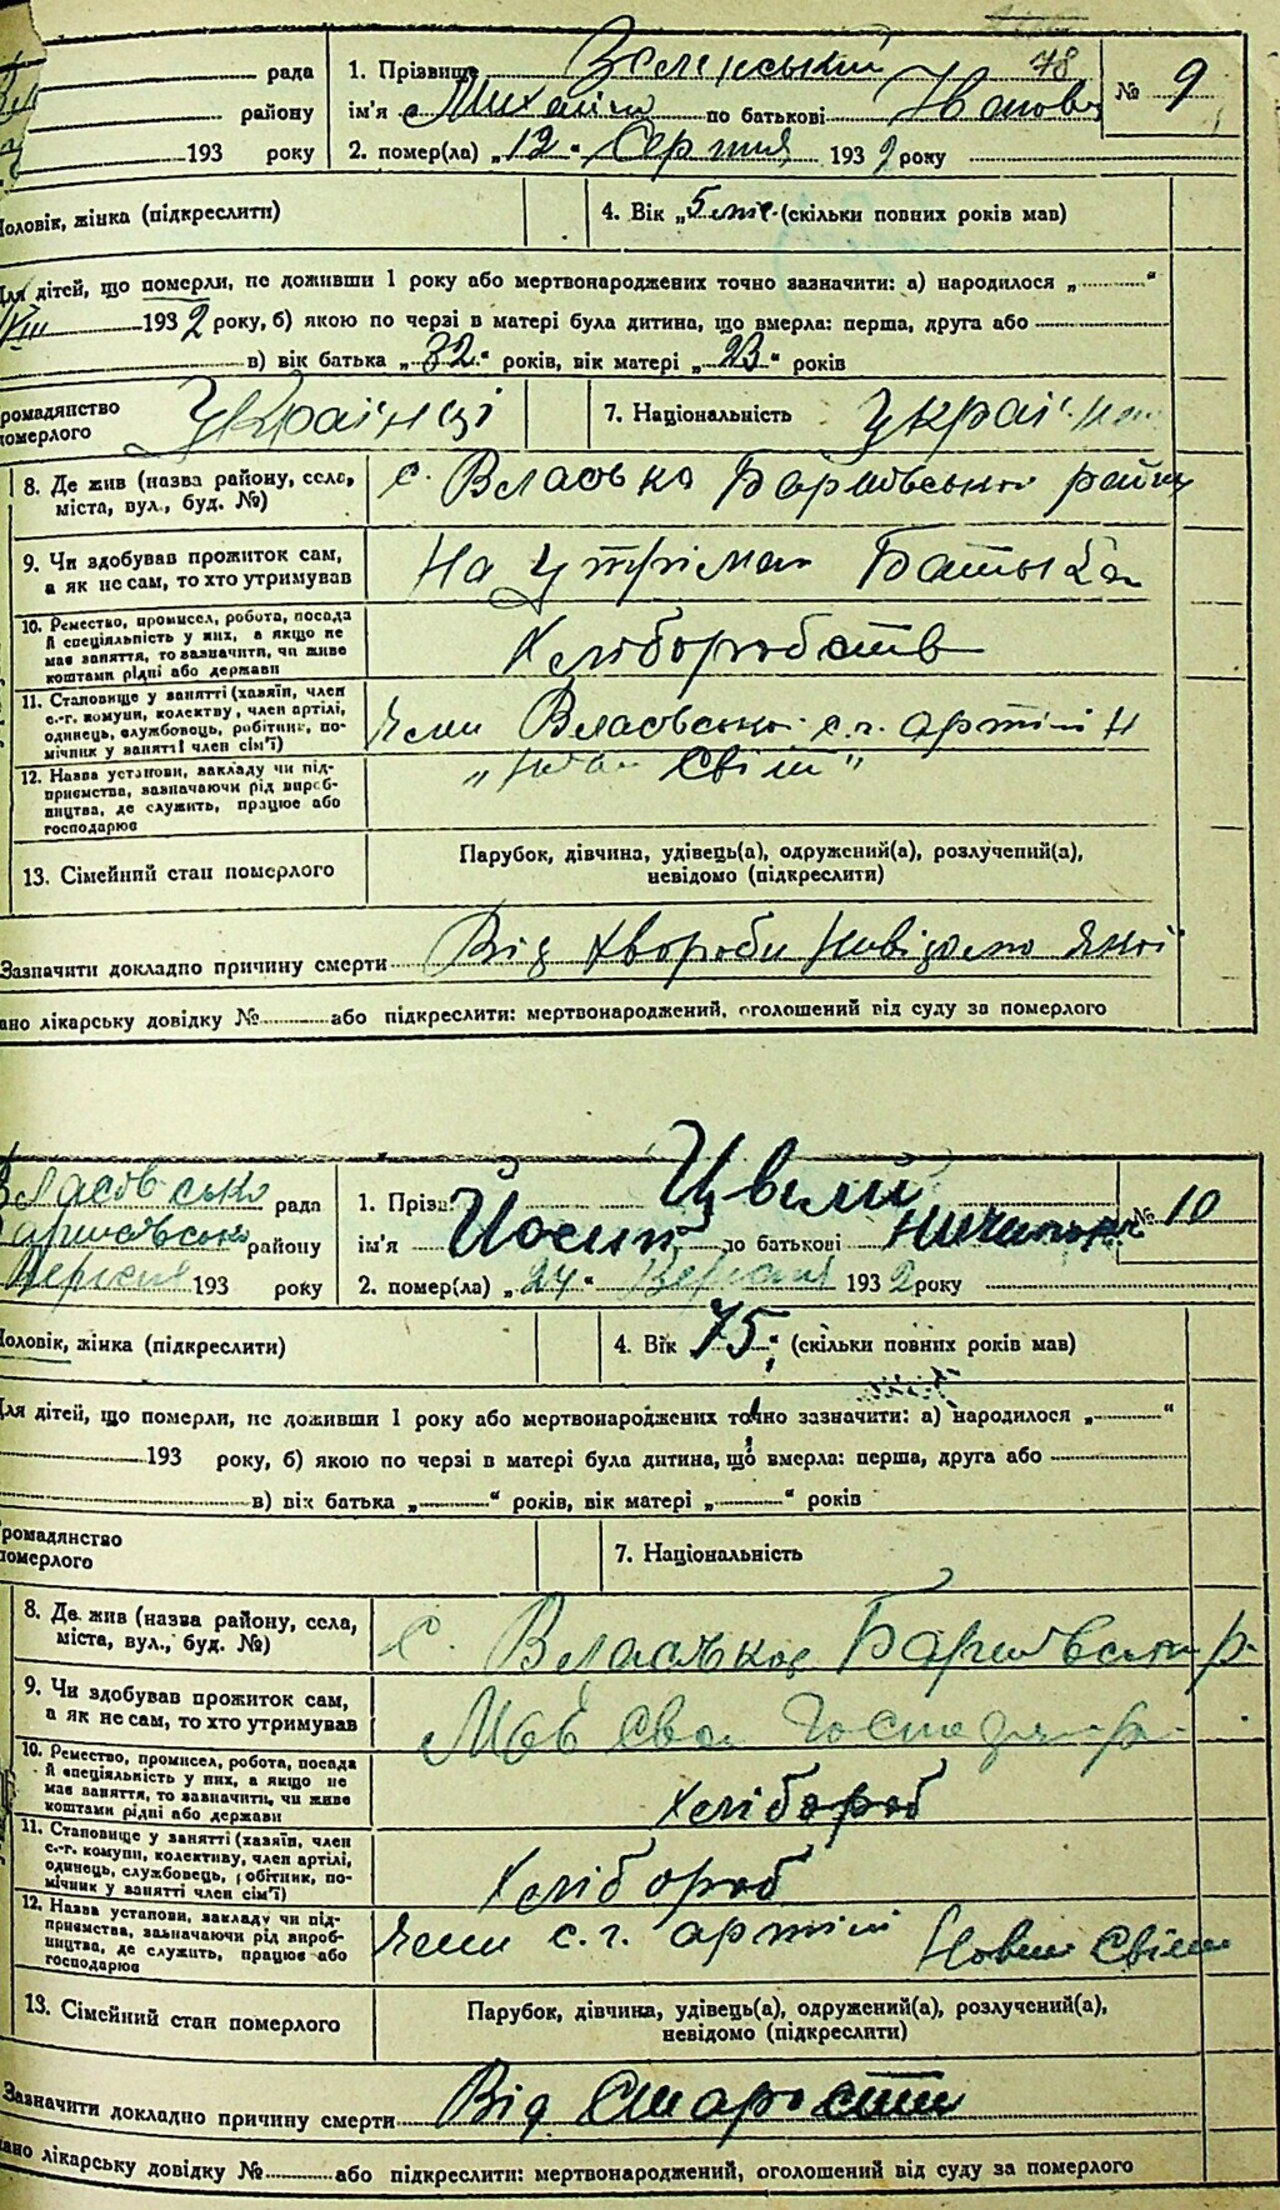 78
рада 1. Прізвище Зеленський № 9
району ім'я Михайло по батькові Іванович
193 року 2. помер(ла) „12“ Серпня 1932 року
чоловік, жінка (підкреслити) 4. Вік „5 міс.“ (скільки повних років мав)
Для дітей, що померли, не доживши 1 року або мертвонароджених точно зазначити: а) народилося „ “
1932 року, б) якою по черзі в матері була дитина, що вмерла: перша, друга або
в) вік батька „32“ років, вік матері „23“ років
громадянство померлого Українці 7. Національність
8. Де жив (назва району, села,
міста, вул., буд. №)
с. Власівка
9. Чи здобував прожиток сам,
а як не сам, то хто утримував
На Батька
10. Ремество, промисел, робота, посада
й спеціяльність у них, а якщо не
має заняття, то зазначити, чи живе
коштами рідні або держави
Хліборобств
11. Становище у занятті (хазяїн, член
с.-г. комуни, колектву, член артілі,
одинець, службовець, робітник, по-
мічник у занятті член сім'ї)
Член Власівської с.г. артілі
12. Назва установи, закладу чи під-
приємства, зазначаючи рід вироб-
ництва, де служить, працює або
господарює
Світ“
13. Сімейний стан померлого
Парубок, дівчина, удівець(а), одружений(а), розлучений(а),
невідомо (підкреслити)
Зазначити докладно причину смерти Від хвороби невідомо якої
лікарську довідку № або підкреслити: мертвонароджений, оголошений від суду за померлого
Власівсько рада 1. Прізв. Цвілий № 10
району ім'я Йосип по батькові
193 року 2. помер(ла) „24“ Вересня 1932 року
чоловік, жінка (підкреслити) 4. Вік 75“ (скільки повних років мав)
Для дітей, що померли, не доживши 1 року або мертвонароджених точно зазначити: а) народилося „ “
193 року, б) якою по черзі в матері була дитина, що вмерла: перша, друга або
в) вік батька „ “ років, вік матері „ “ років
громадянство померлого 7. Національність
8. Де жив (назва району, села,
міста, вул., буд. №)
с. р.
9. Чи здобував прожиток сам,
а як не сам, то хто утримував
Мав
10. Ремество, промисел, робота, посада
й спеціяльність у них, а якщо не
має заняття, то зазначити, чи живе
коштами рідні або держави
хлібороб
11. Становище у занятті (хазяїн, член
с.-г. комуни, колективу, член артілі,
одинець, службовець, робітник, по-
мічник у занятті член сім'ї)
Хлібороб
12. Назва установи, закладу чи під-
приємства, зазначаючи рід вироб-
ництва, де служить, працює або
господарює
Член с.г. артілі Новий Світ
13. Сімейний стан померлого
Парубок, дівчина, удівець(а), одружений(а), розлучений(а),
невідомо (підкреслити)
Зазначити докладно причину смерти Від Старости
лікарську довідку № або підкреслити: мертвонароджений, оголошений від суду за померлого